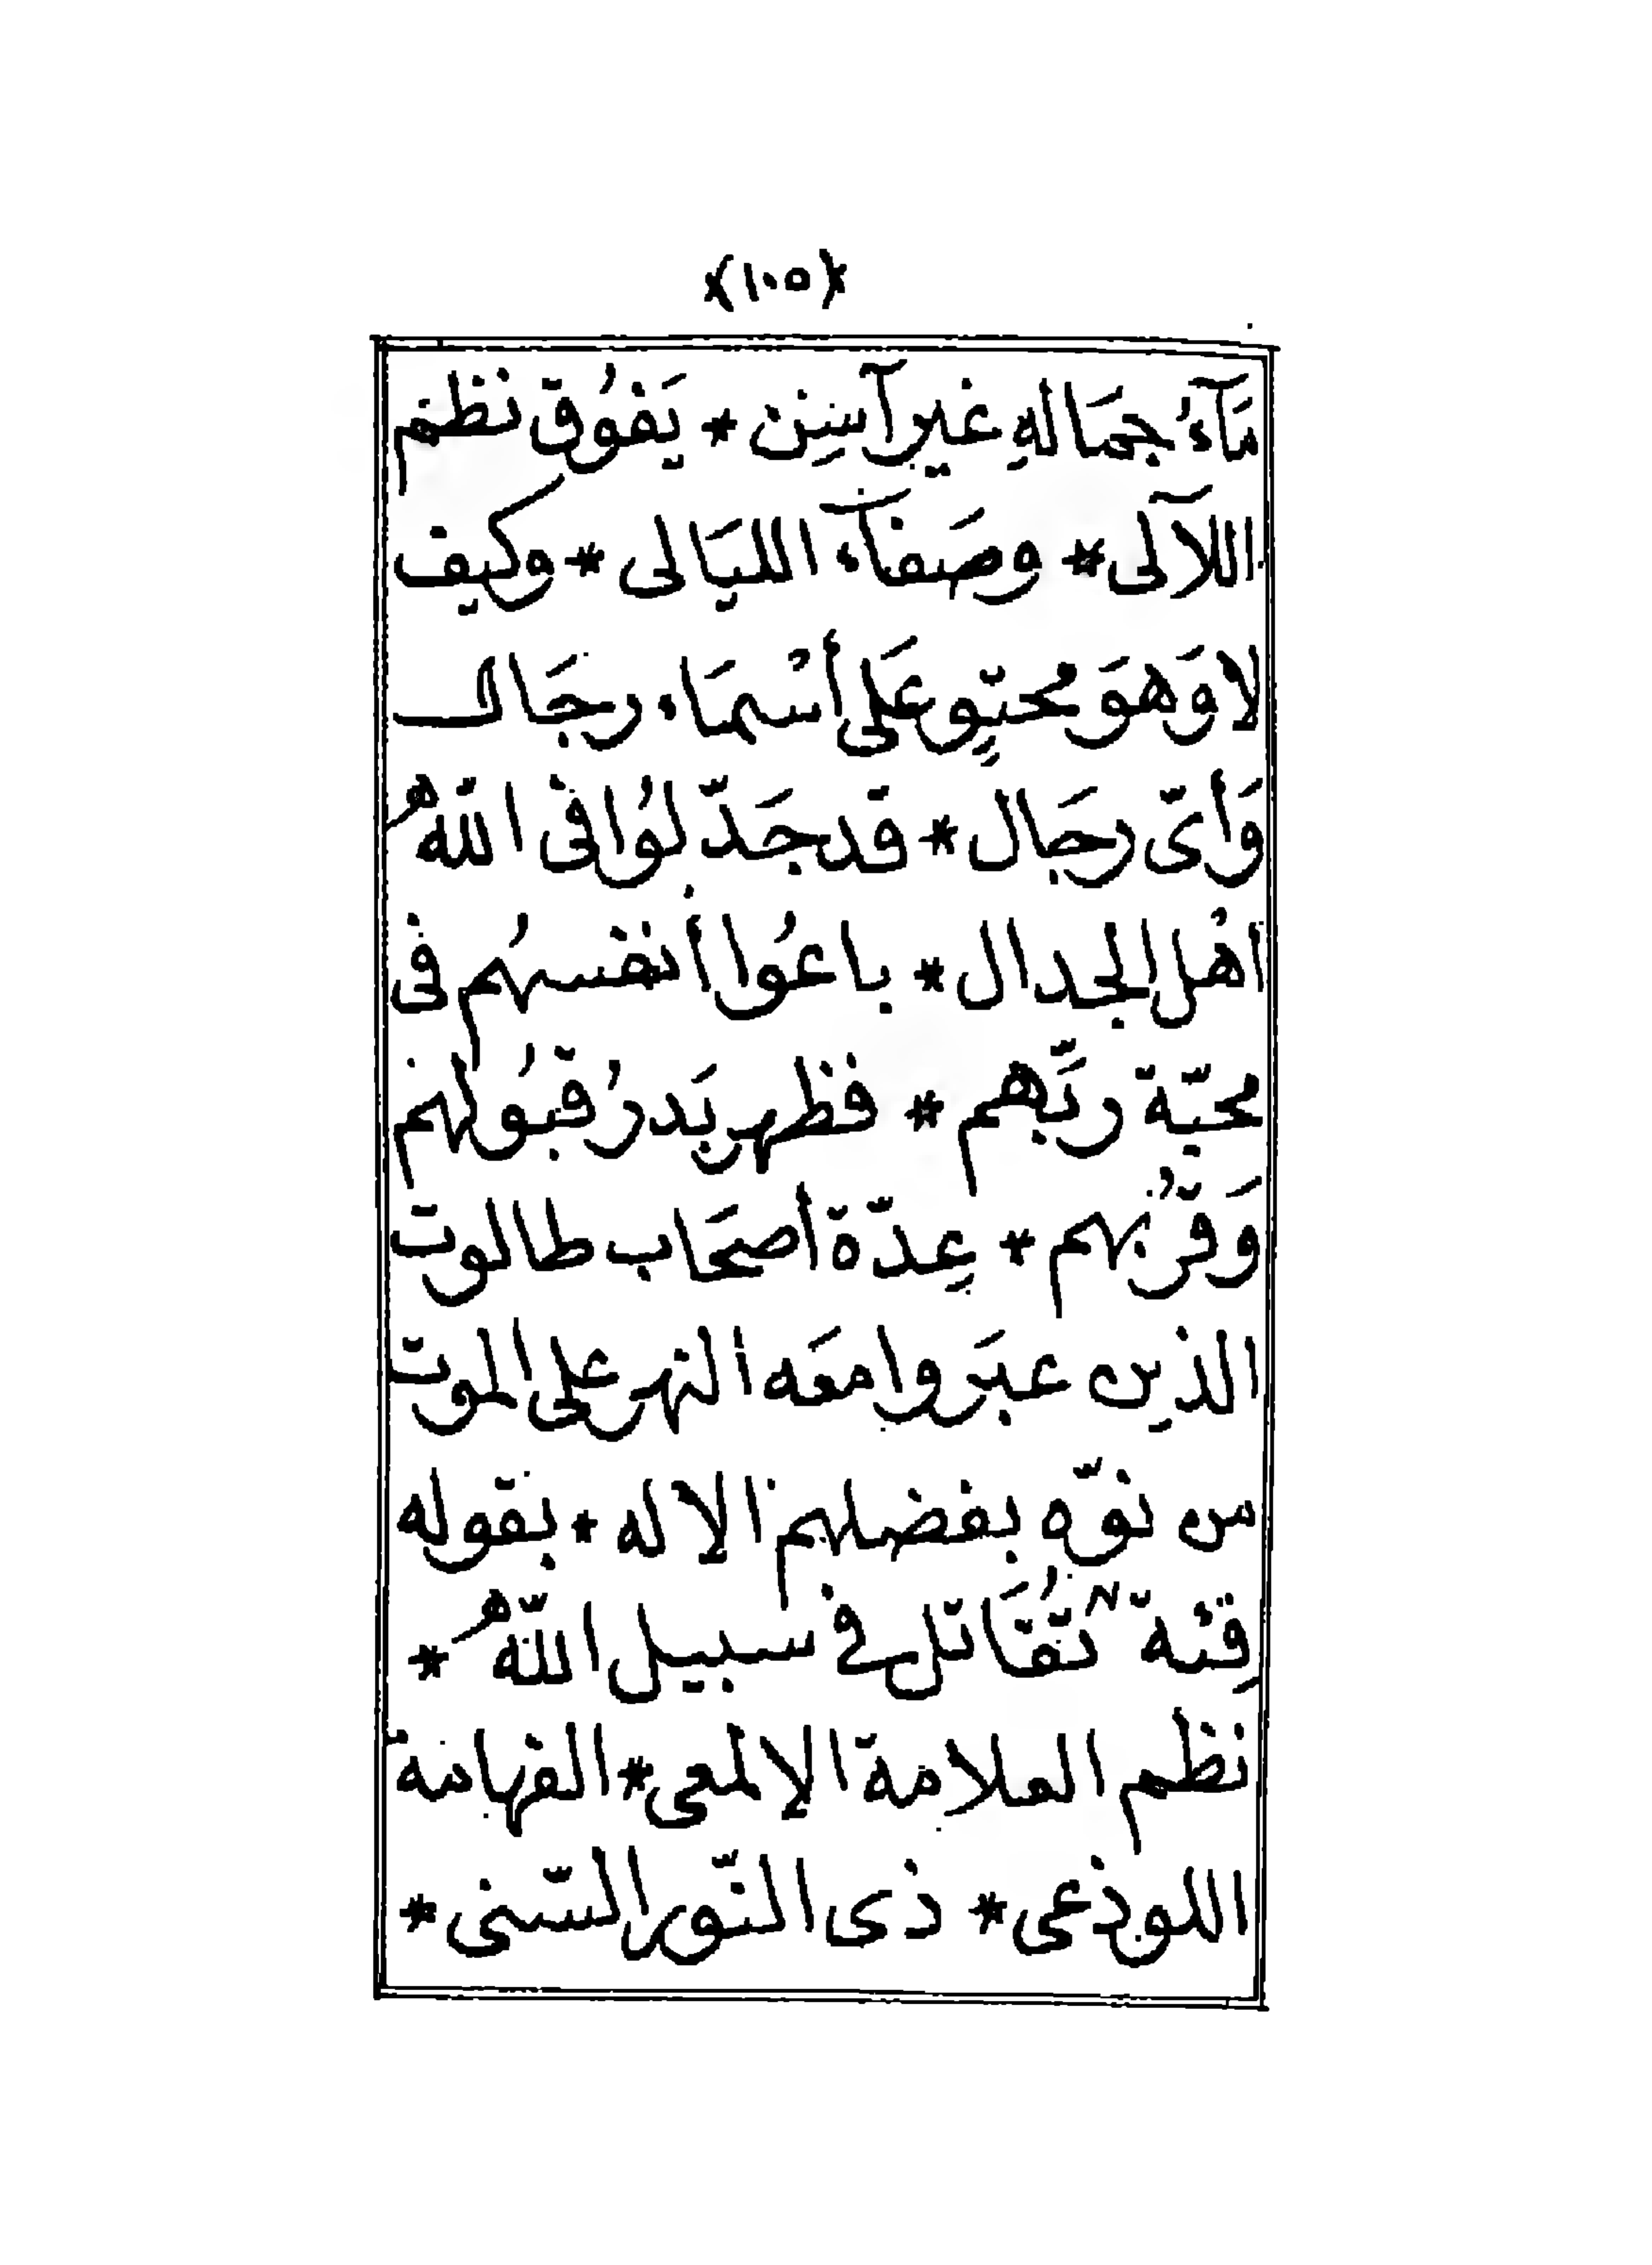 ﴿١٠٥﴾
مَآءُ جمَالهِ غير آسِن * يَفوُق نظم
اللآلى * وصَفآء الليَالى * وكيف
لا وَهوَ محتوٍ عَلى أسْمَاء رجَال
وَأىّ رجَال * قد جَدّلوُا فى اللّٰه
اهْل الجدال * باعُوا أنفسهُم فى
محبّة ربَّهم * فظهر بَدرُ قبوُلهم
وَقرُّبهم * عِدّة أصحَاب طالوت
الذين عبَروا معَه النهر على الموت
من نوّه بفضلهم الإله * بقوله
فِئة تقُاَتل في سبيل اللّٰه *
نظم العلامة الإلمعى * الفهامة
اللوذعى * ذى النّور السّنى *